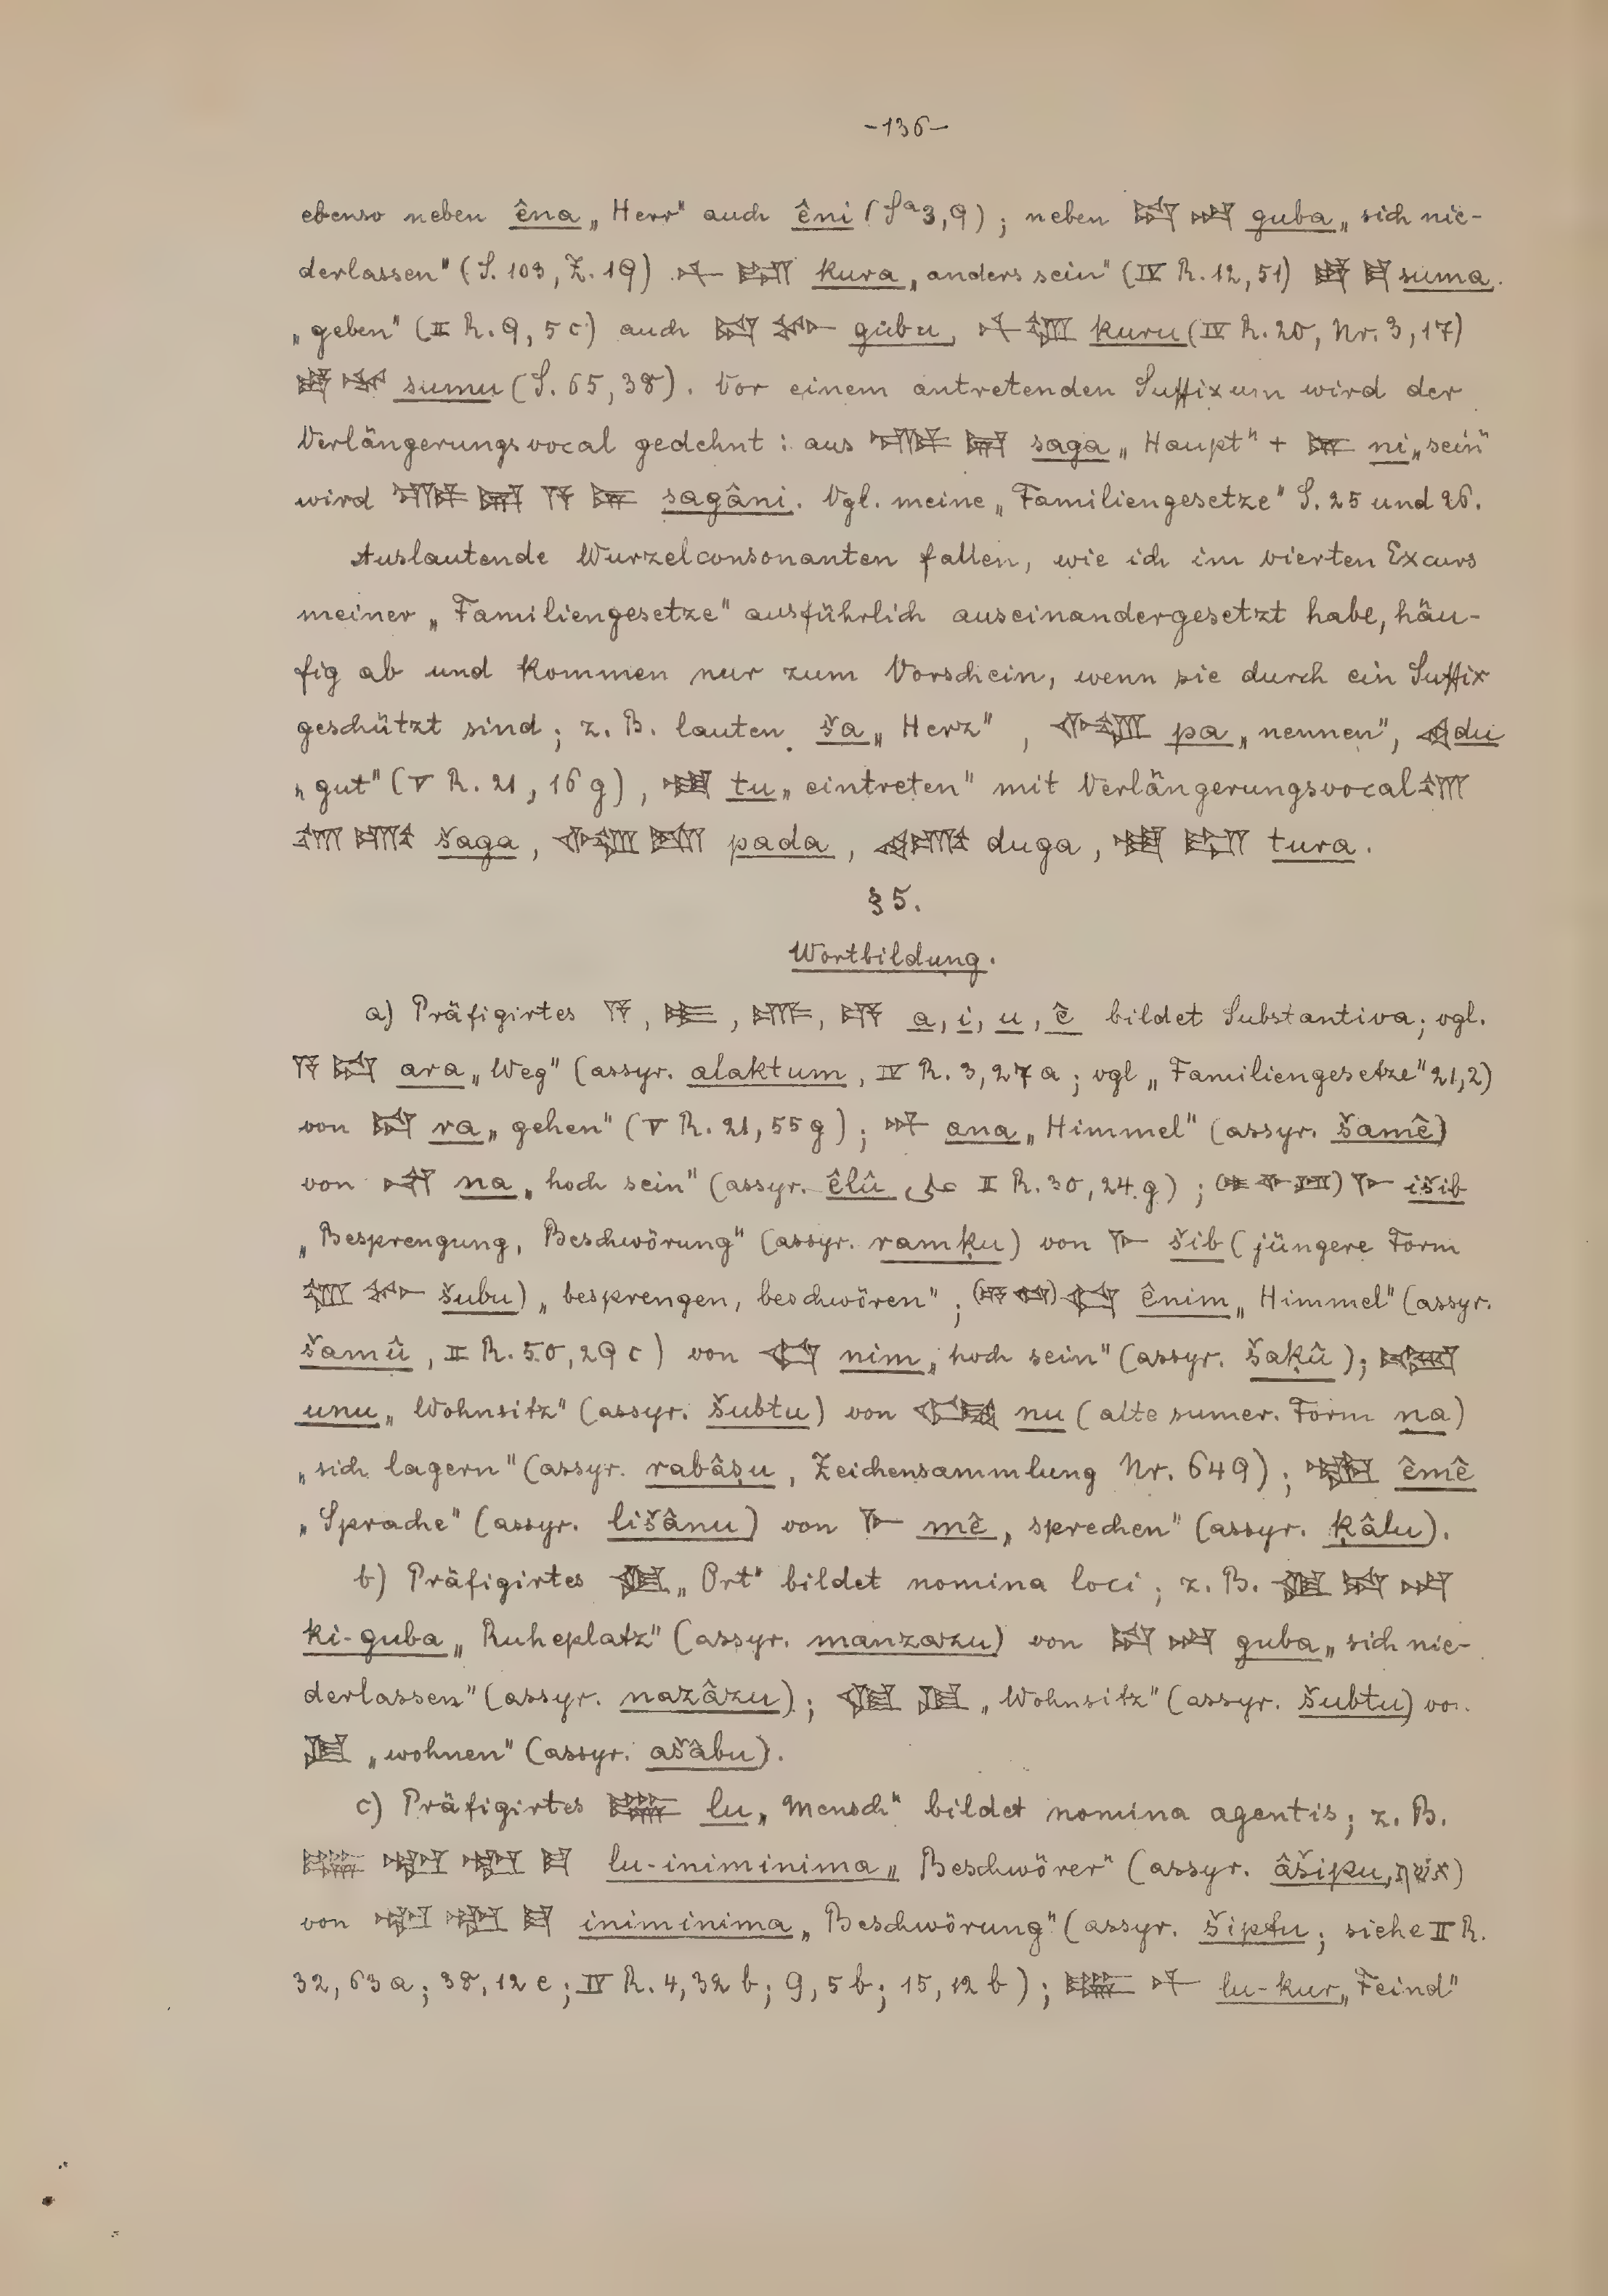 -136-
ebenso neben êna „Herr" auch êni (Sᵃ 3,9); neben 𒁺 𒁀 guba „sich nie-
derlassen" (S. 103, Z. 19) 𒉽 𒊏 kura „anders sein" (IV R. 12, 51) suma
„geben" (II R. 9, 5c) auch 𒁺 𒁍 gubu, 𒉽 kuru (IV R. 20, Nr. 3, 17)
sumu (S. 65, 38). Vor einem antretenden Suffixum wird der
Verlängerungsvocal gedehnt: aus 𒊕 𒂷 saga „Haupt" + 𒉌 ni „sein"
wird 𒊕 𒂷 𒀀 𒉌 sagâni. Vgl. meine „Familiengesetze" S. 25 und 26.
Auslautende Wurzelconsonanten fallen, wie ich im vierten Excurs
meiner „Familiengesetze" ausführlich auseinandergesetzt habe, häu-
fig ab und kommen nur zum Vorschein, wenn sie durch ein Suffix
geschützt sind; z. B. lauten ša „Herz", pa „nennen", du
„gut" (V R. 21, 16g), 𒌅 tu „eintreten" mit Verlängerungsvocal
šaga, pada, duga, 𒌅 𒊏 tura.
§ 5.
Wortbildung.
a) Präfigirtes 𒀀, 𒄿, 𒌑, 𒂊 a, i, u, ê bildet Substantiva; vgl.
𒀀 𒁺 ara „Weg" (assyr. alaktum, IV R. 3, 27a; vgl „Familiengesetze" 21, 2)
von 𒁺 ra „gehen" (V R. 21, 55g); 𒀭 ana „Himmel" (assyr. šamê)
von 𒈾 na „hoch sein" (assyr. êlû II R. 30, 24.g); 𒈨 išib
„Besprengung, Beschwörung" (assyr. ramḳu) von 𒈨 šib (jüngere Form
šubu) „besprengen, beschwören"; 𒉏 ênim „Himmel" (assyr.
šamû, II R. 50, 29c) von 𒉏 nim „hoch sein" (assyr. šaḳû);
unu „Wohnsitz" (assyr. šubtu) von nu (alte sumer. Form na)
„sich lagern" (assyr. rabâṣu, Zeichensammlung Nr. 649); 𒅴 êmê
„Sprache" (assyr. lišânu) von 𒈨 mê „sprechen" (assyr. ḳâlu).
b) Präfigirtes 𒆠 „Ort" bildet nomina loci; z. B. 𒆠 𒁺 𒁀
ki-guba „Ruheplatz" (assyr. manzazu) von 𒁺 𒁀 guba „sich nie-
derlassen" (assyr. nazâzu); 𒆠 𒆪 „Wohnsitz" (assyr. šubtu) von
𒆪 „wohnen" (assyr. ašâbu).
c) Präfigirtes 𒇽 lu „Mensch" bildet nomina agentis; z. B.
𒇽 𒅗 𒅗 𒈠 lu-iniminima „Beschwörer" (assyr. âšipu, )
von 𒅗 𒅗 𒈠 iniminima „Beschwörung" (assyr. šiptu; siehe II R.
32, 63a; 38, 12e; IV R. 4, 32b; 9, 5b; 15, 12b); 𒇽 𒉽 lu-kur „Feind"